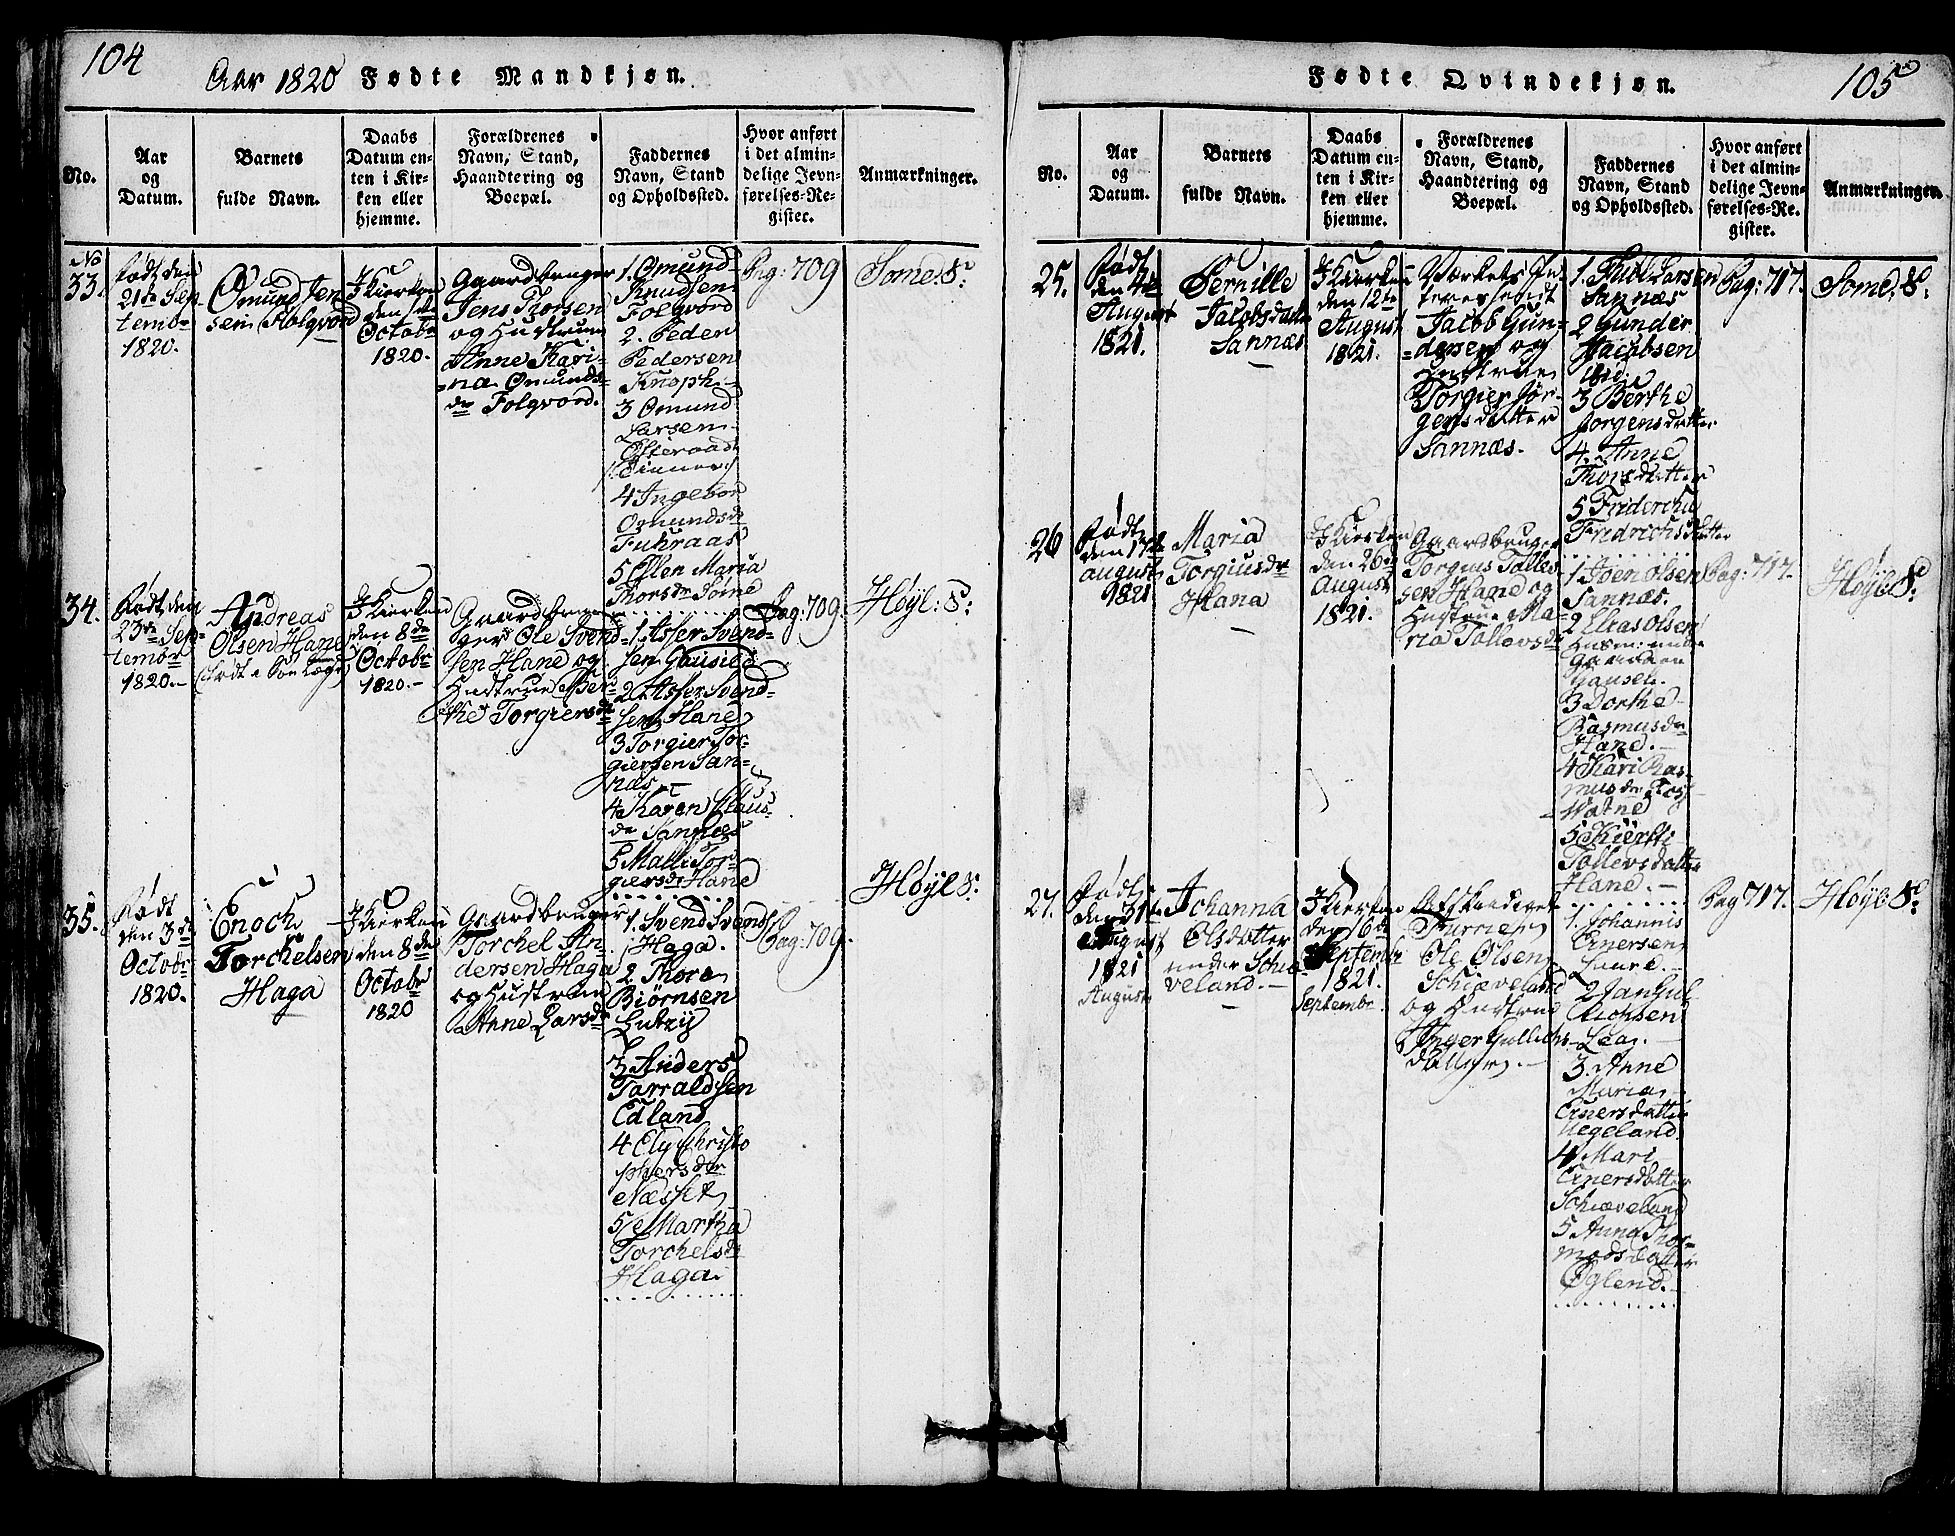 104
Aar 1820 Fødte Mandkjøn.
No.
Aar
og
Datum.
Barnets
fulde Navn.
Daabs
Datum en-
ten i Kir-
ken eller
hjemme.
Forældrenes
Navn, Stand,
Haandtering og
Boepæl.
Faddernes
Navn, Stand
og Opholdssted.
Hvor anført
i det almin-
delige Jevn-
førelses-Re-
gister.
Anmærkninger.
No
33.
født den
21de Sep-
tembr
1820.
Omund Jen
sen Folgvord
I Kierken
den 1ste
Octobr
1820.
Gaardbruger
Jens Thorsen
og Hustrue
Anne Kari-
na Omunds-
dr Folgvord.
1. Omund
Knudsen
Folgvord
2. Peder
Pedersen
Knoph.
3 Omund
Larsen
4 Ingebor
Omundsdr
Fuhraas
5 Ellen Maria
Thorsdr Søme
Pag: 709
Some: S:
34.
Født den
23de Sep-
tembr
1820.
Andreas
Olsen Hane
I Kierken
den 8de
Octobr
1820.
Gaardbru-
ger Ole Svend-
sen Hane og
Hustrue Ber-
the Torgiersdr
1 Asser Svend-
sen Gausild
2. Asser Svend-
sen Hane
3 Torgier Tor-
giersen San-
næs
4 Karen Claus-
dr Sannæs
5 Malli Tor-
giersdr Hane
Pag: 709.
Høyl: S:
35.
Født
den 3de
Octobr
1820.
Enoch
Torchelsen
Haga
I Kierken
den 8de
Octobr
1820
Gaardbruger
Torchel An-
dersen Haga
og Hustrue
Anne Larsdr
1. Svend Svends
Haga.
2 Thore
Bjørnsen
Lutzy
3 Anders
Tarraldsen
Edland
4 Ely Christo
phersdr
Næsset
5 Martha
Torchelsdr
Haga.
Pag: 709.
Høyl S:
105
Fødte Qvindekjøn.
No.
Aar
og
Datum.
Barnets
fulde Navn.
Daabs
Datum en-
ten i Kir-
ken eller
hjemme.
Forældrenes
Navn, Stand,
Haandtering og
Boepæl.
Faddernes
Navn, Stand
og Opholdssted.
Hvor anført
i det almin-
delige Jevn-
førelses-Re-
gister.
Anmærkninger.
25.
Født
den 4de
August
1821.
Pernille
Jacobsdatter
Sannæs
I Kierken
den 12te
August
1821.
Værkets In-
teressendt
Jacob Gun-
dersen og
Hustrue
Torgier Jør-
gensdatter
Sannæs.
1 Larsen
Sannæs
2 Gunder
Jacobsen
ibid.
3 Berthe
Jorgensdatter
4. Anne
Thorsdatter
5 Fridericha
Fredrichsdatter
Pag: 717.
Some: S:
26
Født
den 17de
August
1821
Maria
Torgiusdr
Hana
I Kierken
den 26de
August
1821.
Gaardbruger
Torgius Tolles-
sen Hane og
Hustrue Ma-
ria Tollevsdr
1 Joen Olsen
Sannæs.
2 Elias Olsen
Gausel.
3 Dorthe
Rasmusdr
Hane.
4 Kari Ras-
musdr Fos-
Watne
5 Kierstti
Tollevsdatter
Hane.
Pag: 717.
Høyl S:
27.
Født
den 31te
August
1821
August
Johanna
Olsdatter
under Schie-
veland.
I Kierken
den 16de
Septembr
1821.
Septembr
Ole Olsen
Schieveland
og Hustrue
Inger Gullichs-
datter.
1. Johannis
Einersen
Laure.
2 Jan Gul
lichsen
Lea.
3. Anne
Maria
Einersdatter
Uegeland
4 Mari
Einersdatter
Schieveland
5 Anna Thor-
modsdatter
Øglend.
Pag 717.
Høyl: S: